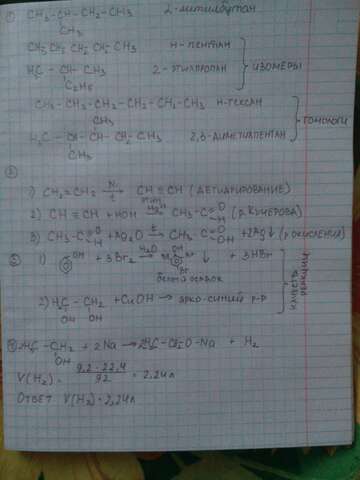 ① CH₃-CH-CH₂-CH₃ 2-метилбутан
CH₃
CH₃CH₂CH₂CH₂CH₃ н-пентан
H₃C - CH - CH₃ 2-этилпропан
C₂H₅
изомеры
CH₃-CH₂-CH₂-CH₂-CH₂-CH₃ н-гексан
CH₃
H₃C-CH-CH-CH₂-CH₃ 2,3-диметилпентан
CH₃
гомологи
1) CH₂=CH₂ → CH≡CH (дегидрирование)
2) CH≡CH + HOH → CH₃-C=O H (р. Кучерова)
3) CH₃-C=O H + Ag₂O → CH₃-C=O OH + 2Ag↓ (р окисления)
1) OH + 3Br₂ → OH Br Br Br ↓ + 3HBr
H₂O
белый осадок
2) H₂C - CH₂ + CuOH → ярко-синий р-р
OH OH
реакции
④ - CH₂ + 2Na → - Na + H₂
OH
V(H₂) = 9,2·22,4 / 92 = 2,24л
Ответ V(H₂) = 2,24л